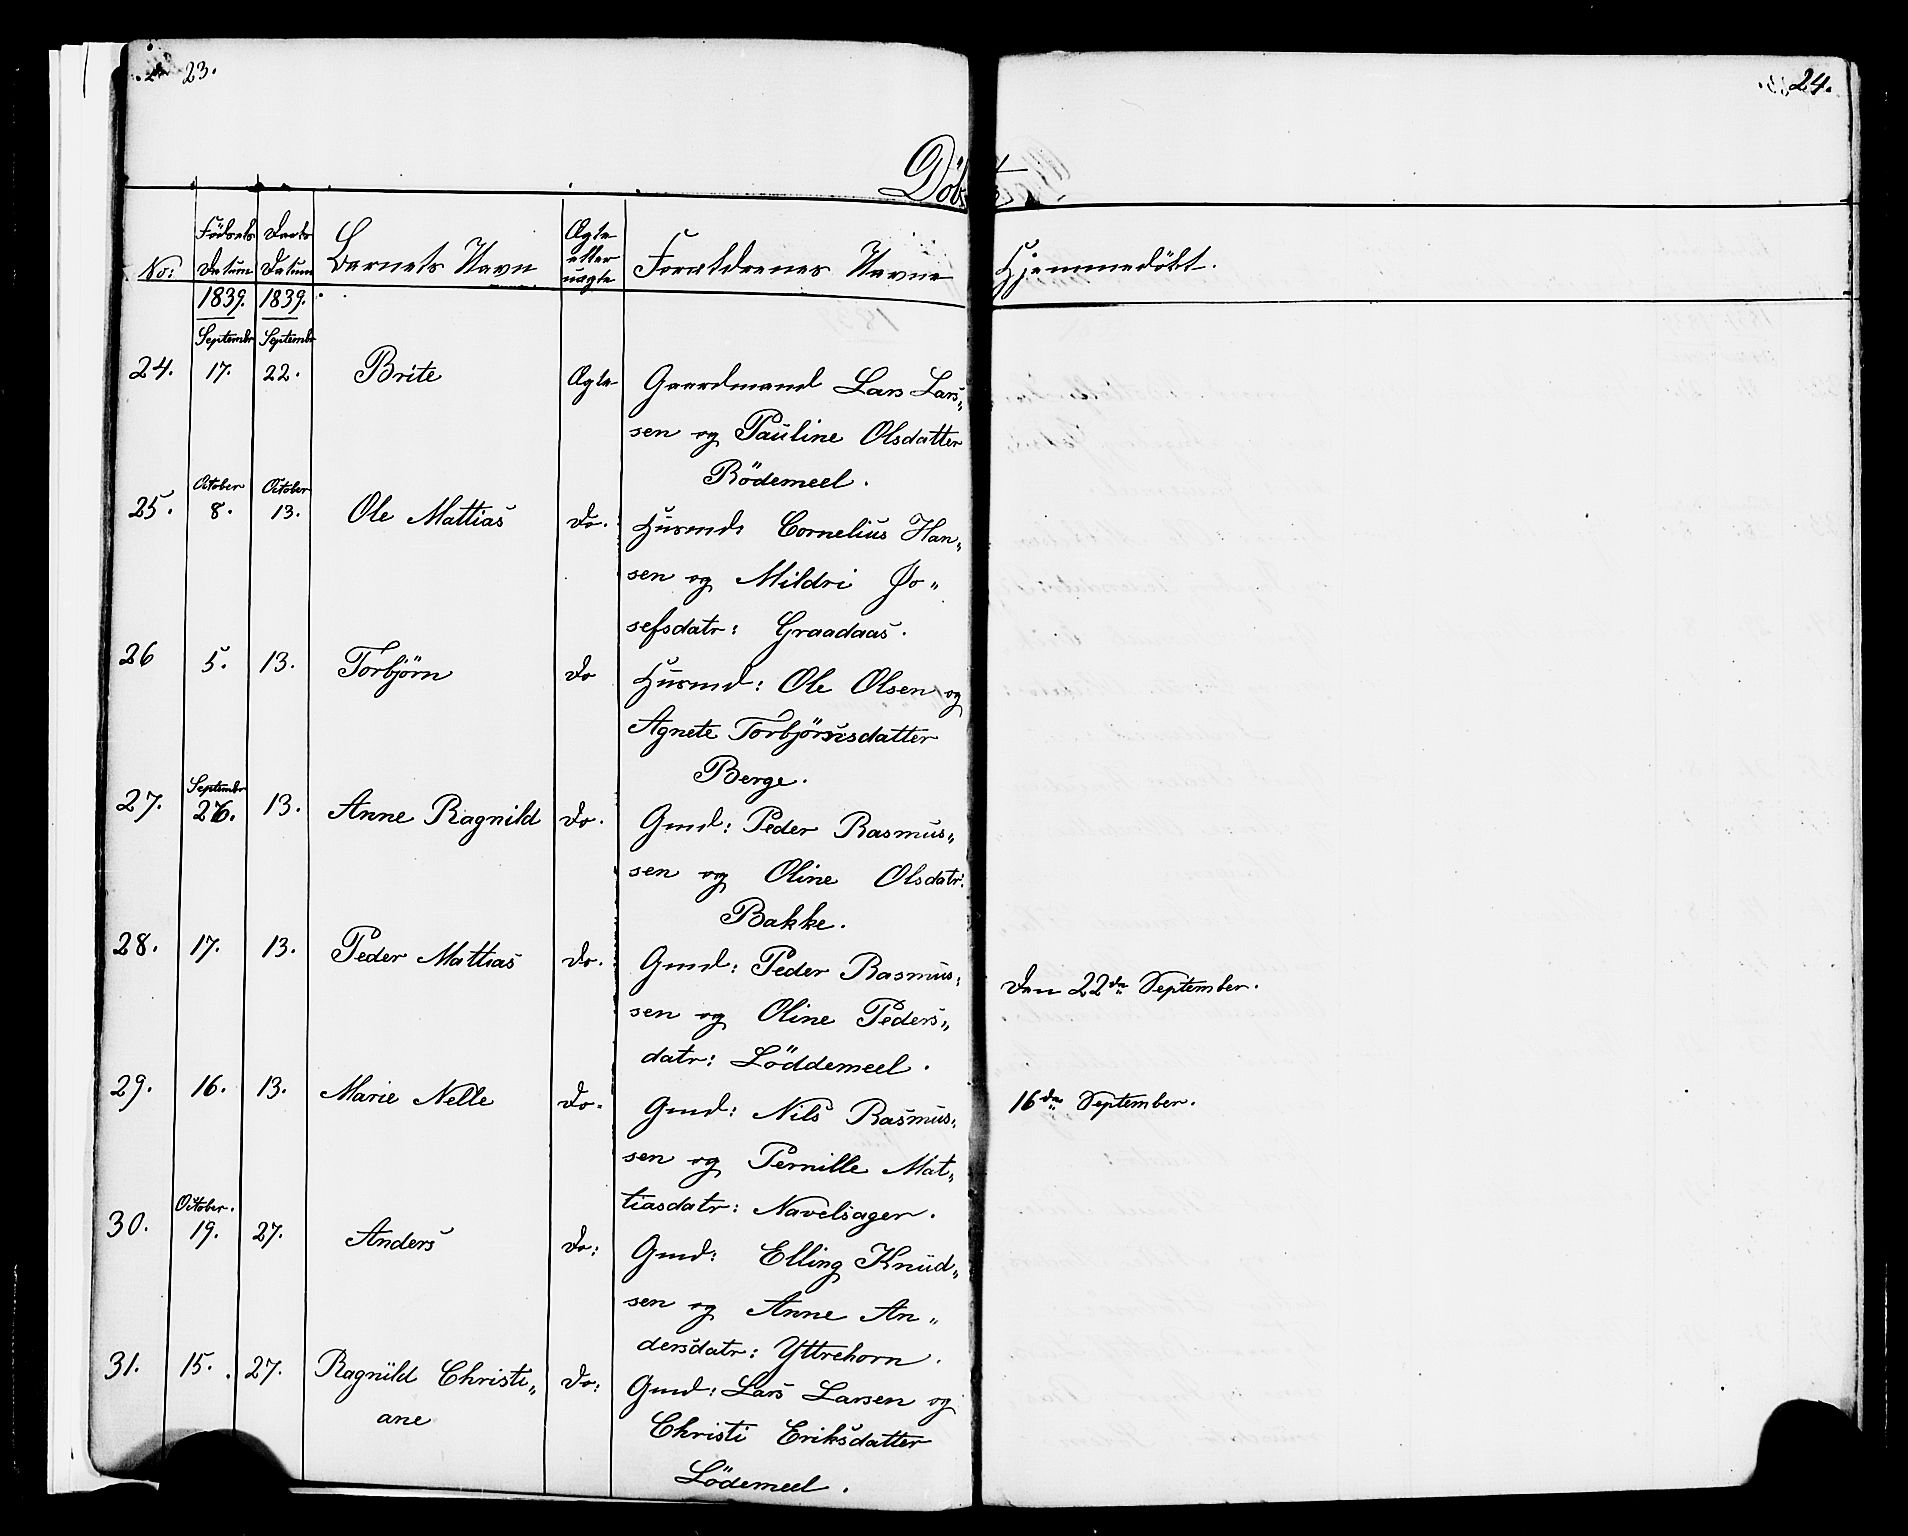 23.
24.
Döbte
No:
Födsels Datum
Daabs Datum
Barnets Navn
Ægte eller uægte
Forældrenes Navne
Hjemmedöbt.
1839. 1839.
Septembr Septembr
24. 17. 22. Brite Ægte Gaardmand Lars Lars„
sen og Pauline Olsdatter
Rödemeel.
October October
25. 8. 13. Ole Mattias Do. Husmd: Cornelius Han„
sen og Mildri Jo„
sefsdatr: Graadaas.
26 5. 13. Torbjørn Do Husmd: Ole Olsen og
Agnete Torbjörnsdatter
Berge.
Septembr
27. 26. 13. Anne Ragnild Do. Gmd: Peder Rasmus„
sen og Oline Olsdatr:
Bakke.
28. 17. 13. Peder Mattias Do. Gmd: Peder Rasmus„ Den 22de September.
sen og Oline Peders„
datr: Löddemeel.
29. 16. 13. Marie Nelle Do. Gmd: Nils Rasmus„ 16de September.
sen og Pernille Mat„
tiasdatr: Navelsager.
October.
30. 19. 27. Anders Do: Gmd: Elling Knud„
sen og Anne An„
dersdatr: Yttrehorn.
31. 15. 27. Ragnild Christi„ Do: Gmd: Lars Larsen og
ane Christi Eriksdatter
Lödemeel.